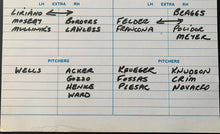 LH EXTRA RH LH EXTRA RH
LIRIANO BRAGGS
MOSEBY BORDERS FELDER
MULLINIKS LAWLESS FRANCONA POLIDOR
MEYER
PITCHERS PITCHERS
WELLS ACKER KRUEGER KNUDSON
BOZZO FOSSAS CRIM
HENKE PLESAC NAVARRO
WARD